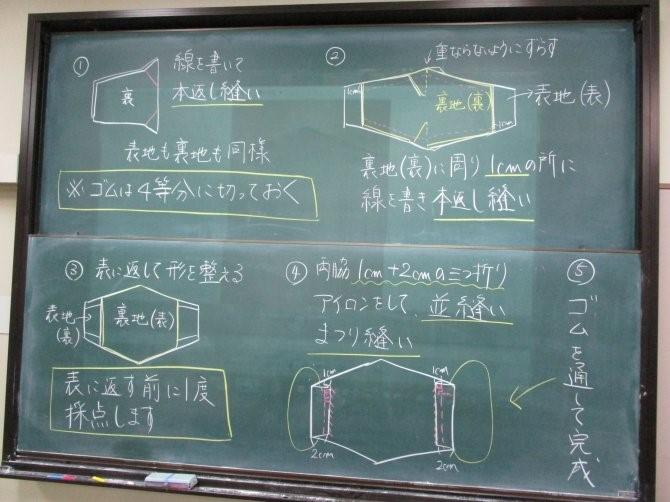 ①
線を書いて
本返し縫い
裏
表地も裏地も同様
※ゴムは4等分に切っておく
②
重ならないようにずらす
1cm
裏地(裏)
表地(表)
1cm
裏地(裏)に周り1cmの所に
線を書き本返し縫い
③ 表に返して形を整える
表地
(裏)
裏地(表)
表に返す前に1度
採点します
④ 両脇1cm+2cmの三つ折り
アイロンをして、並縫い
まつり縫い
1cm
1cm
2cm
2cm
⑤
ゴムを通して完成